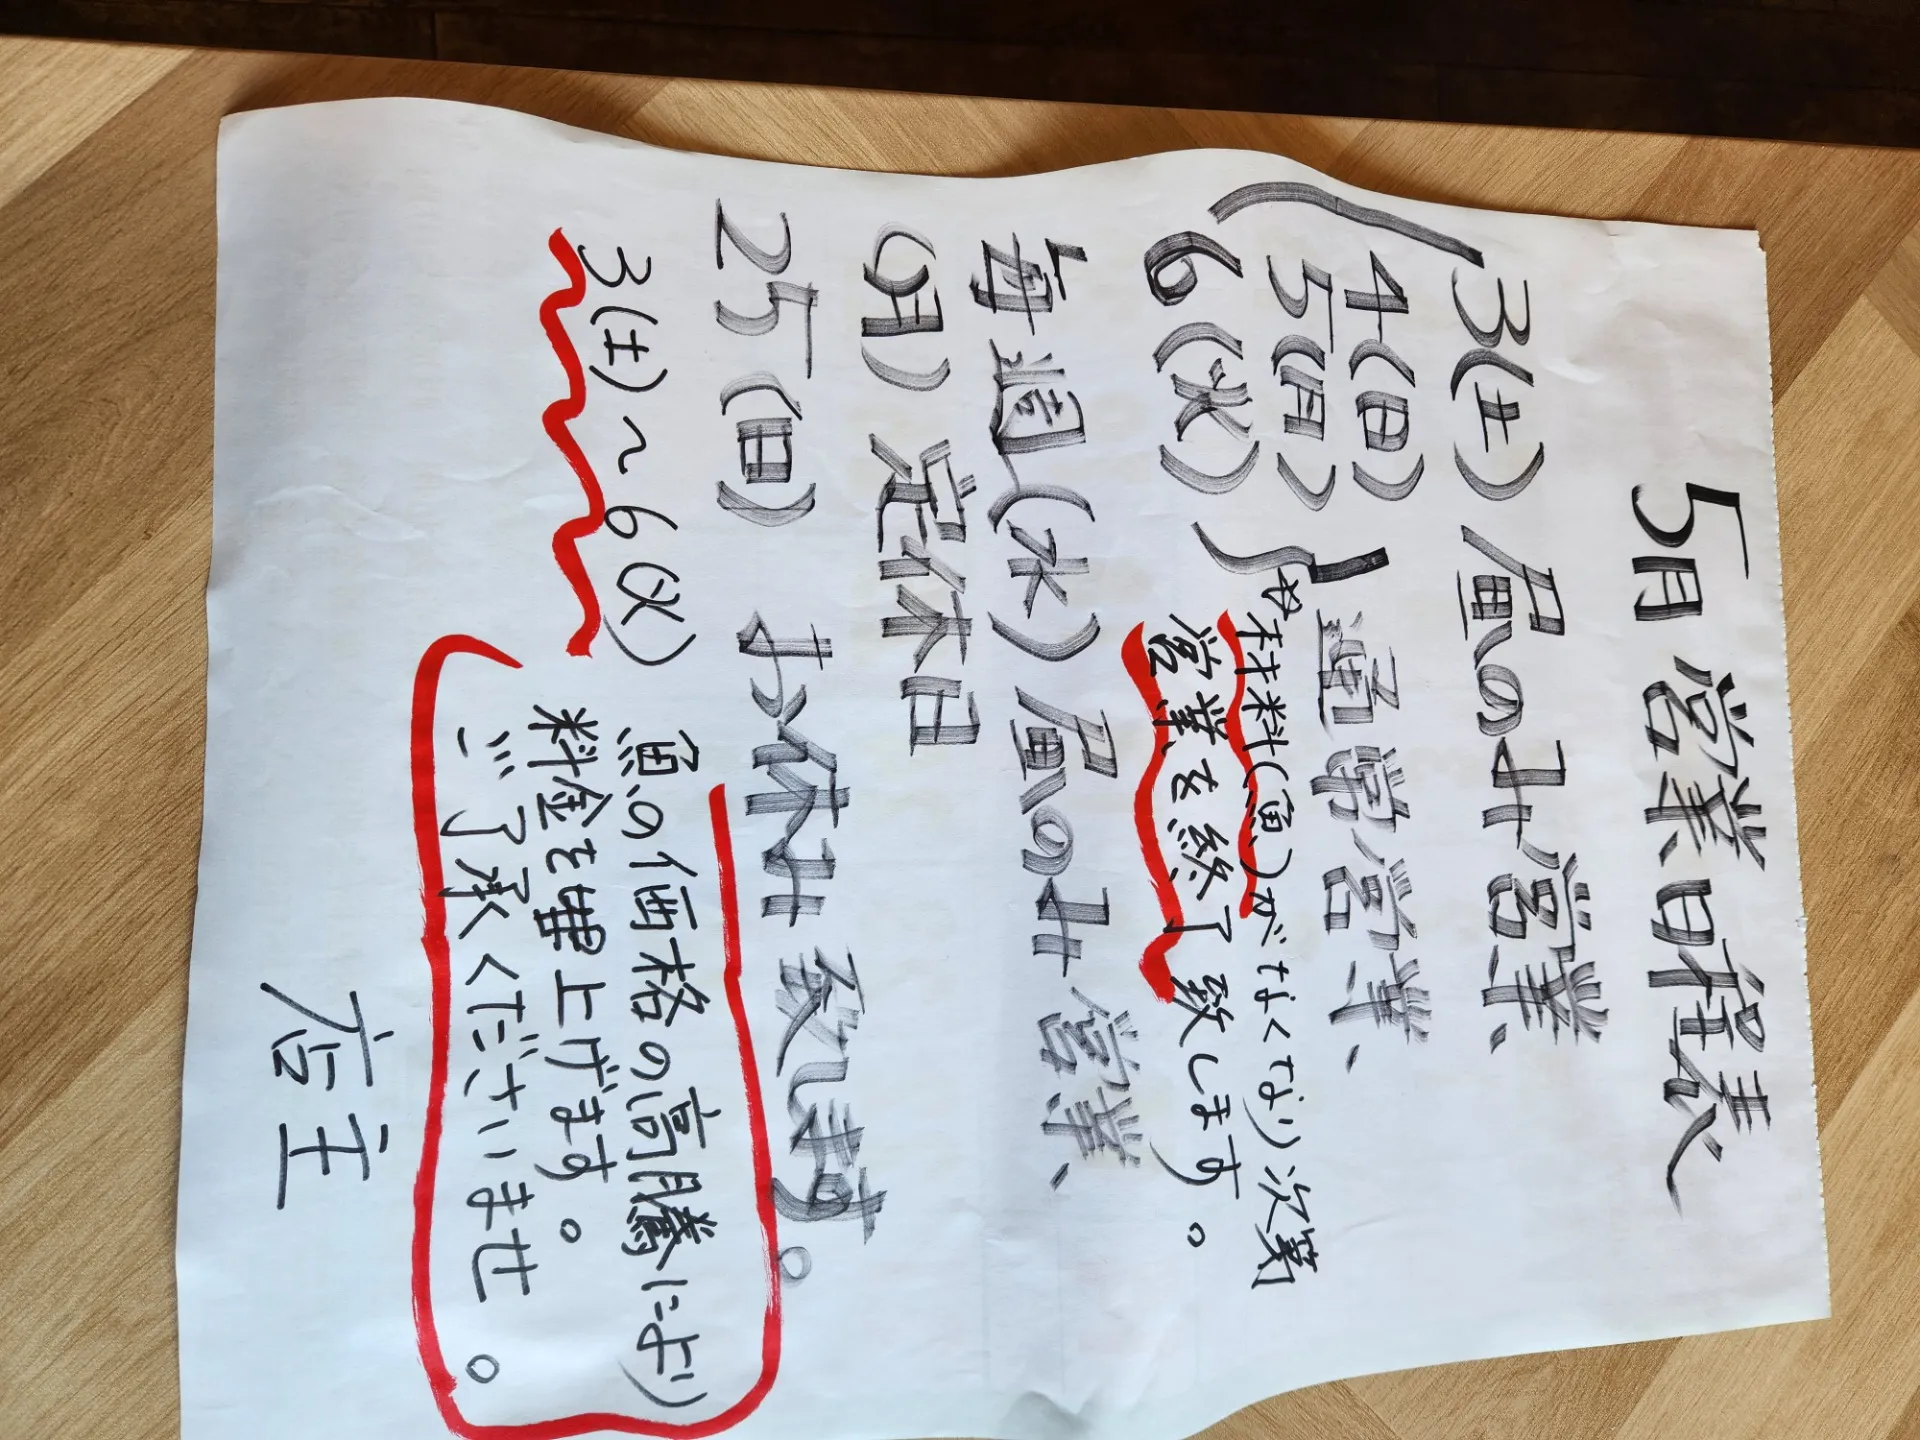 5月 営業日程表
3(土) 昼のみ営業、
4(日)
5(月) 通常営業、
6(火)
材料(魚)がなくなり次第
営業を終了致します。
毎週(水)昼のみ営業、
(月)定休日
25(日) お休み致します。
3(土)〜6(火) 魚の価格の高騰により
料金を要上げます。
ご了承くださいませ。
店主